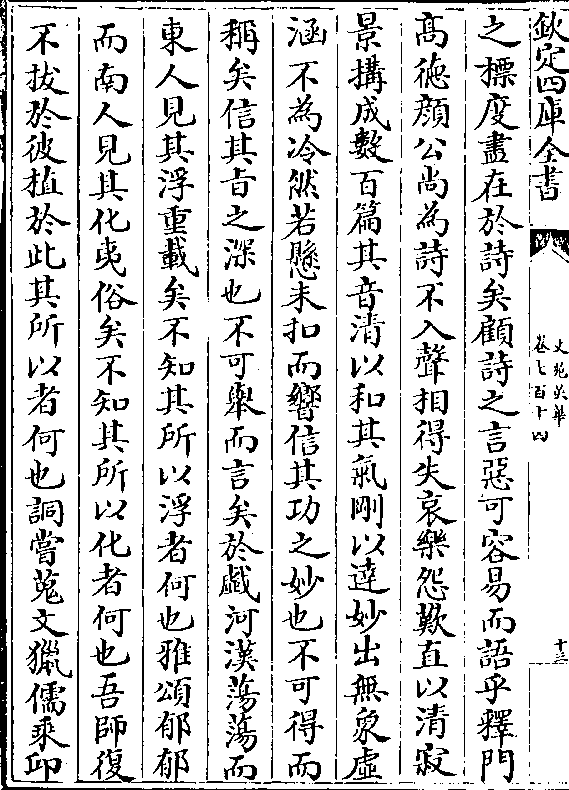 欽定四庫全書
文苑英華
卷七百十四
十三
之標度盡在於詩矣顧詩之言惡可容易而語乎釋門
髙徳顔公尚為詩不入聲相得失哀樂怨歎直以清寂
景搆成數百篇其音清以和其氣剛以達妙出無象虛
涵不為冷然若懸未扣而響信其功之妙也不可得而
稱矣信其旨之深也不可舉而言矣於戲河漢蕩蕩而
東人見其浮重載矣不知其所以浮者何也雅頌郁郁
而南人見其化夷俗矣不知其所以化者何也吾師復
不拔於彼植於此其所以者何也詞嘗蒐文獵儒乘卬